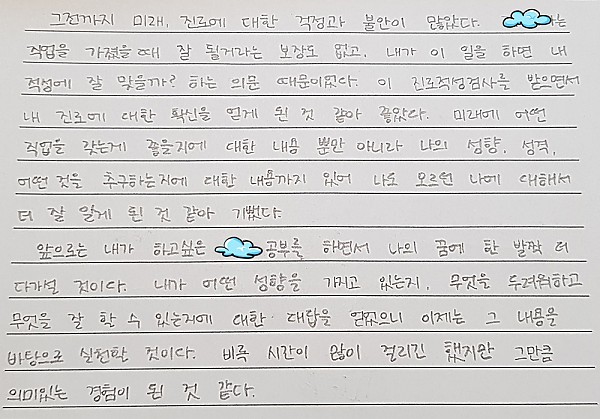 그전까지 미래, 진로에 대한 걱정과 불안이 많았다. 는
직업을 가졌을 때 잘 될거라는 보장도 없고, 내가 이 일을 하면 내
적성에 잘 맞을까? 하는 의문 때문이었다. 이 진로적성검사를 받으면서
내 진로에 대한 확신을 얻게 된 것 같아 좋았다. 미래에 어떤
직업을 갖는게 좋을지에 대한 내용 뿐만 아니라 나의 성향, 성격,
어떤 것을 추구하는지에 대한 내용까지 있어 나도 모르던 나에 대해서
더 잘 알게 된 것 같아 기뻤다.
앞으로는 내가 하고싶은 공부를 하면서 나의 꿈에 한 발짝 더
다가설 것이다. 내가 어떤 성향을 가지고 있는지, 무엇을 두려워하고
무엇을 잘 할 수 있는지에 대한 대답을 얻었으니 이제는 그 내용을
바탕으로 실천할 것이다. 비록 시간이 많이 걸리긴 했지만 그만큼
의미있는 경험이 된 것 같다.